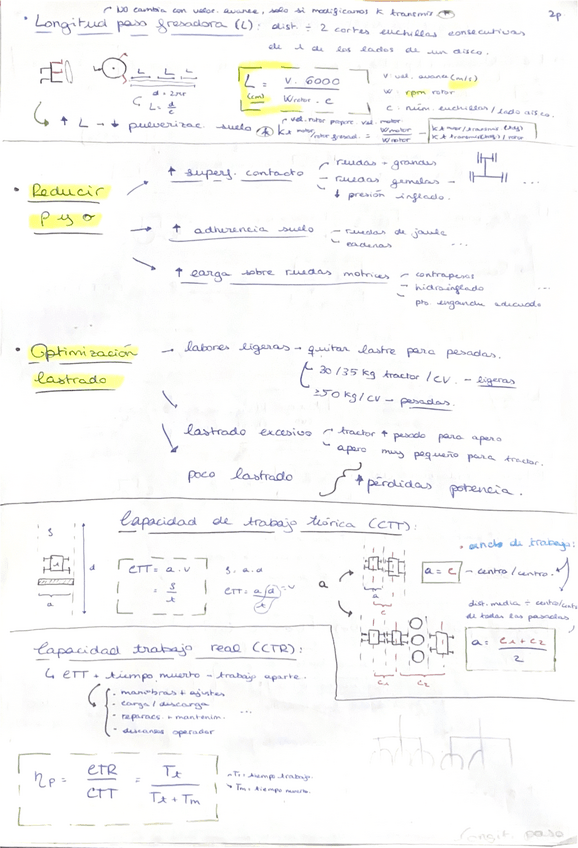 No cambia con veloc. avance, solo si modificamos K transmis
2p
• Longitud paso fresadora (L): dist ÷ 2 cortes cuchillas consecutivas
de 1 de los lados de un disco.
L L L
d = 2πr
↳ L = d/c
L (cm) = v · 6000 / Wrotor · c
v: vel. avance (m/s)
w: rpm rotor
c: núm. cuchillas / lado disco.
↑ L → ↓ pulverizac. suelo
vel. rotor propre vel. motor
K t motor/rotor fresad. = Wmotor / Wrotor
• Reducir
ρ y σ
↑ superf. contacto
- ruedas + grandes
- ruedas gemelas -
↓ presión inflado.
...
↑ adherencia suelo
- ruedas de jaula
- cadenas
...
↑ carga sobre ruedas motrices
- contrapesos
- hidroinflado
- pto enganche adecuado
• Optimización
lastrado
→ labores ligeras → quitar lastre para pesadas.
30/35 kg tractor/CV. - ligeras
≥50 kg/CV - pesadas.
lastrado excesivo
- tractor + pesado para apero
- apero muy pequeño para tractor.
poco lastrado
↑ pérdidas potencia.
Capacidad de trabajo teórica (CTT):
S
d
a
CTT = a · v
= S/t
S = a · d
CTT = a · d / t · v
a
a
c
a = c - centro/centro.
• ancho de trabajo:
dist. media ÷ centro/centro
de todas las pasadas
c1 c2
a = c1 + c2 / 2
Capacidad trabajo real (CTR):
↳ CTT + tiempo muerto - trabajo aparte.
• maniobras + ajustes
• carga / descarga
• reparacs. + mantenim. ...
• descanso operador
ηp = CTR / CTT = Tt / Tt + Tm
- Tt: tiempo trabajo.
- Tm: tiempo muerto.
Longit. paso